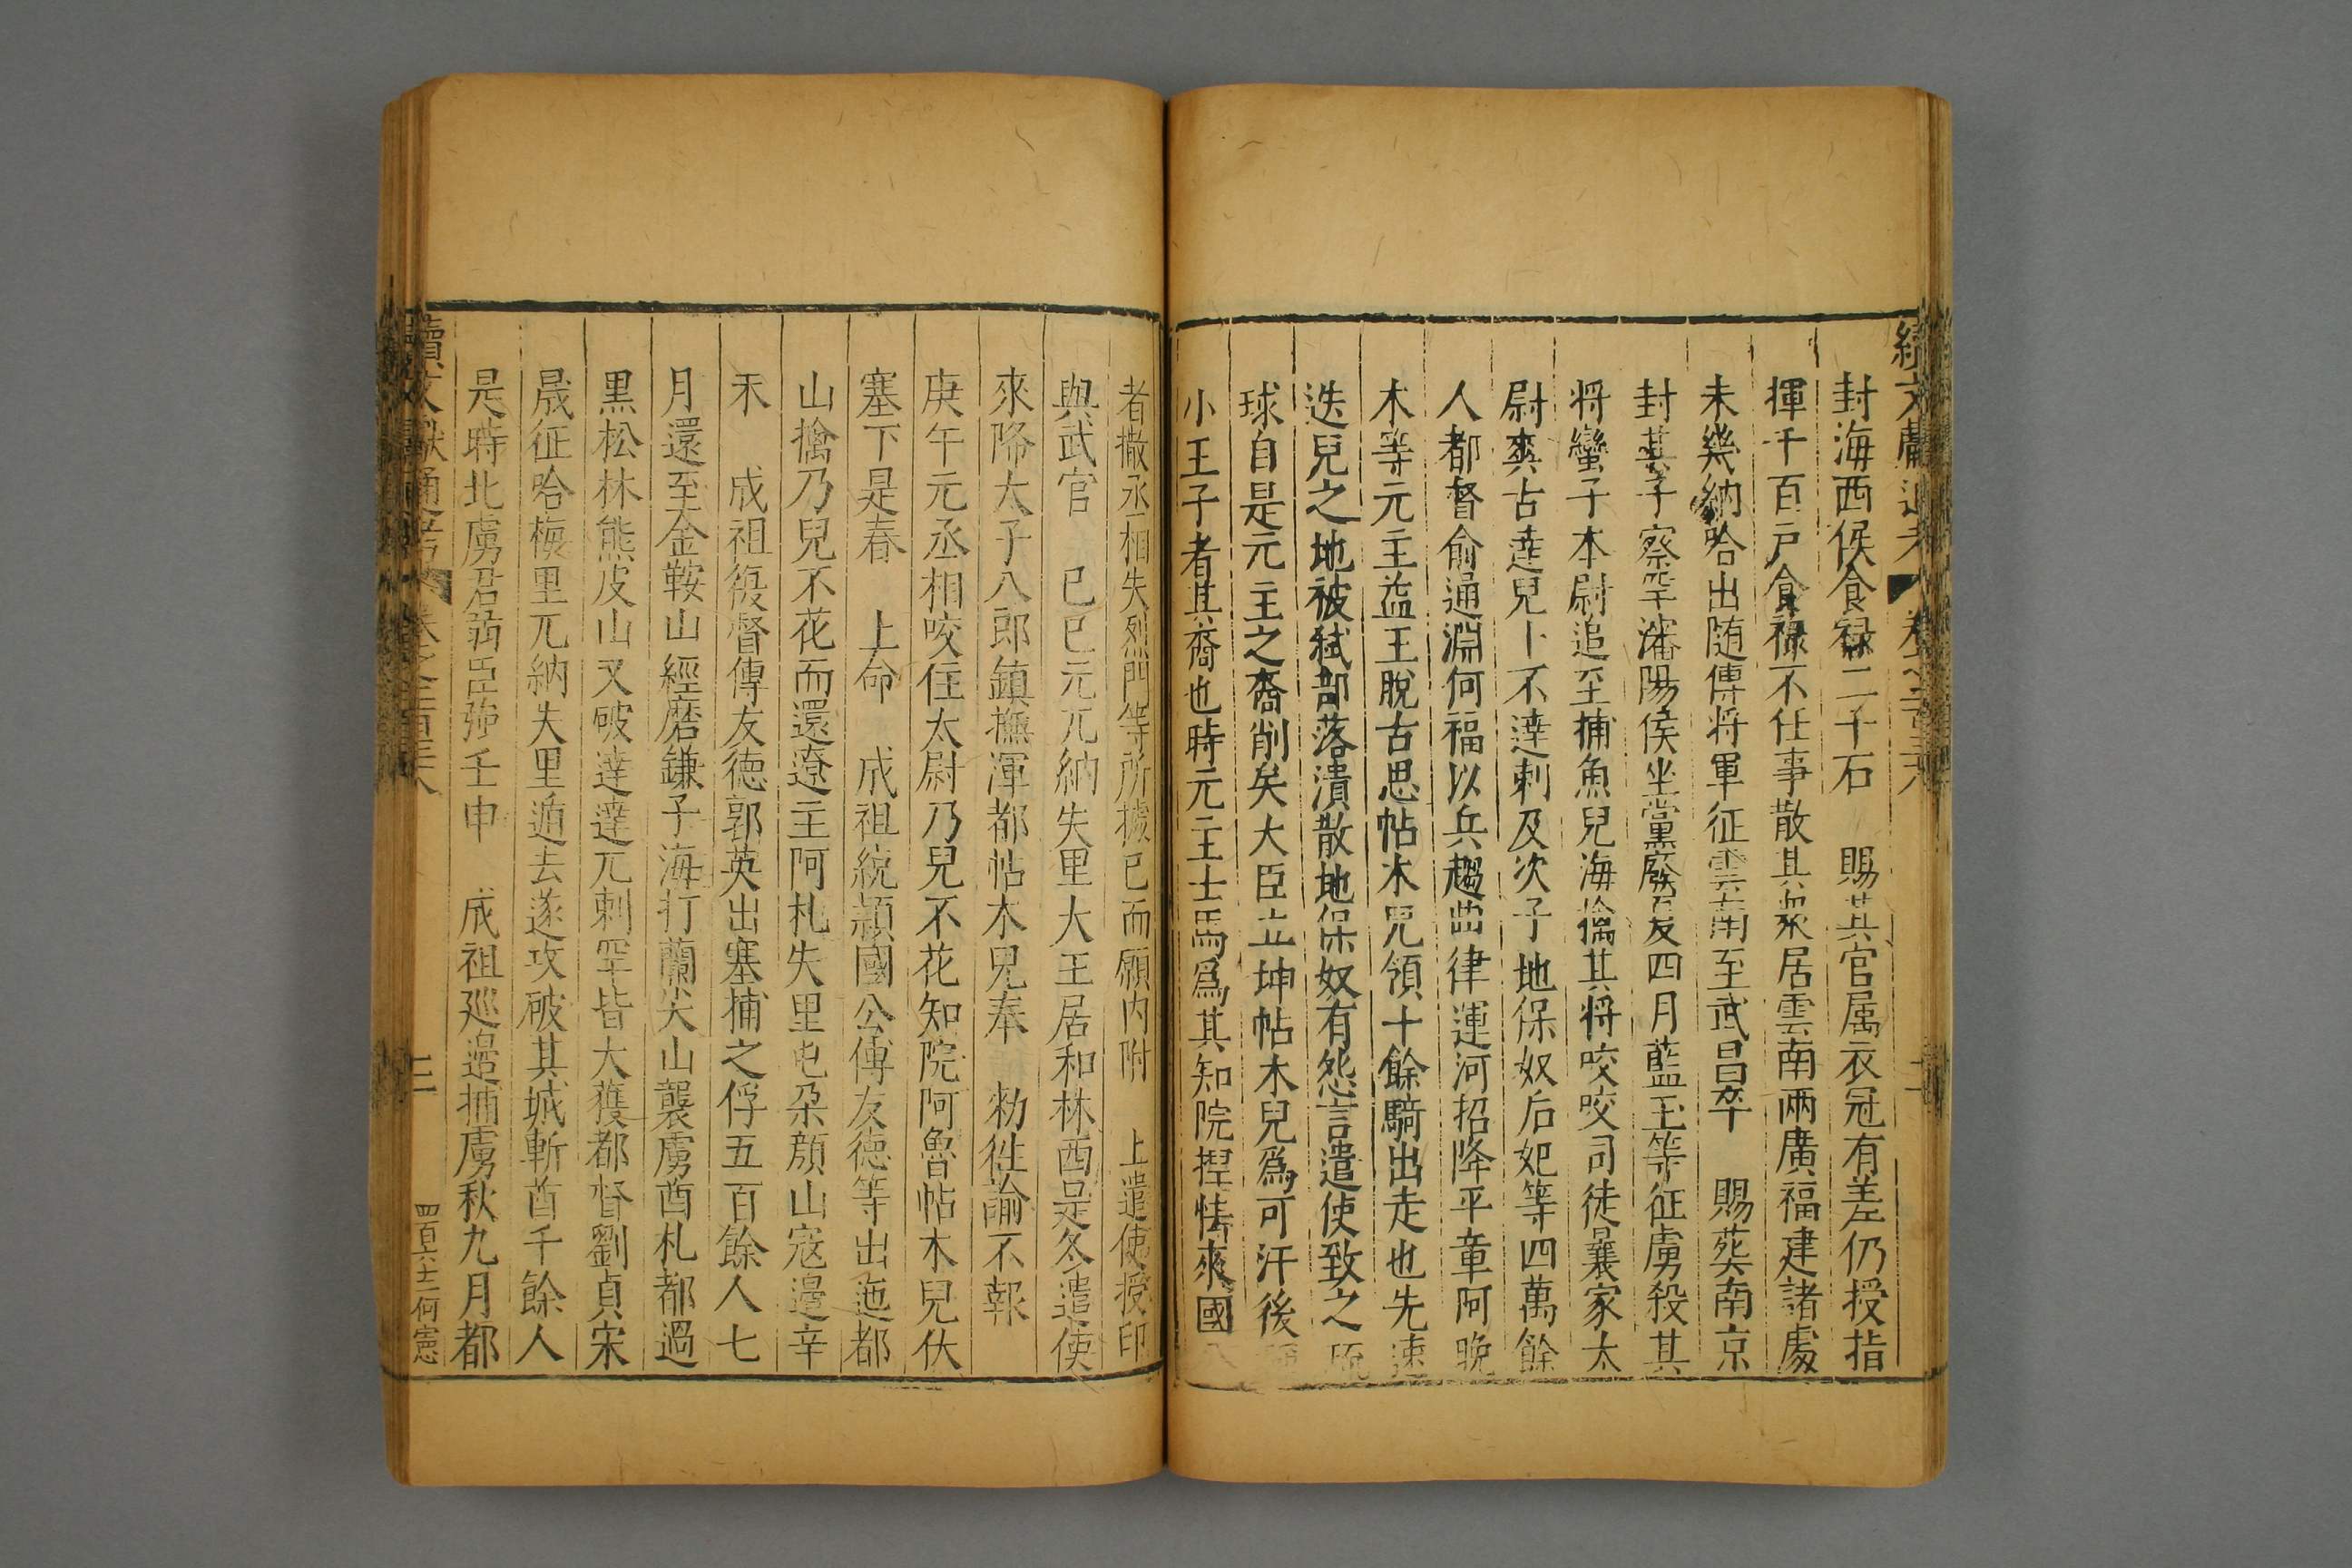 封海西侯食祿二千石　賜其官属衣冠有差仍授指
揮千百戶食祿不任事散其衆居雲南兩廣福建諸處
未幾納哈出隨傅將軍征雲南至武昌卒　賜葬南京
封其子察罕瀋陽侯坐黨廢又四月藍玉等征虜殺其
將蠻子本尉追至捕魚兒海擒其將咬咬司徒曩家太
尉爽古達兒卜不達剌及次子地保奴后妃等四萬餘
人都督俞通淵何福以兵趨曲律運河招降平章阿晚
木等元主益王脫古思帖木兒領十餘騎出走也先速
迭兒之地被弒部落潰散地保奴有怨言遣使致之琉
球自是元主之裔削矣大臣立坤帖木兒爲可汗後
小王子者其裔也時元主士馬爲其知院揑怯來國
者撒丞相失烈門等所據已而願内附　上遣使授印
與武官　己巳元兀納失里大王居和林酉是冬遣使
來降太子八郎鎮撫渾都帖木兒奉　勑徃諭不報
庚午元丞相咬住太尉乃兒不花知院阿魯帖木兒伏
塞下是春　上命　成祖統潁國公傅友德等出迤都
山擒乃兒不花而還遼主阿札失里屯朶顏山寇邊辛
未　成祖復督傅友德郭英出塞捕之俘五百餘人七
月還至金鞍山經磨鎌子海打蘭尖山襲虜酋札都過
黑松林熊皮山又破達達兀剌罕皆大獲都督劉貞宋
晟征哈梅里兀納失里遁去遂攻破其城斬酋千餘人
是時北虜君弱臣強壬申　成祖廵邊捕虜秋九月都
續文獻通考　卷之二百三十八
三
四百六十二何憲